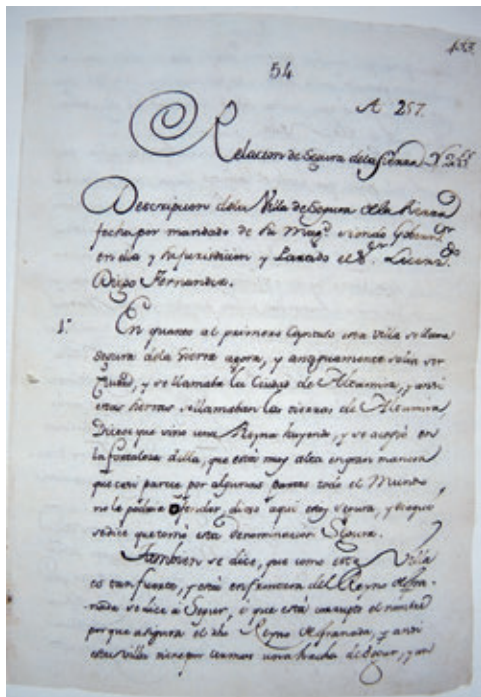 433.
54
A 257.
Relacion de Segura de la Sierra
Descripcion dela Villa de Segura dela Sierra
fecha por mandado de su Mag.d siendo Gobern.or
en ella y su Jurisdicion y Partido el S.or Licenc.do
Diego Fernandez.
1.º En quanto al primero Capitulo esta Villa se llama
Segura dela Sierra agora, y antiguamente solia ser
Ciudad, y se llamaba la Ciudad de Altamira, y ansi
estas tierras se llamaban las tierras de Altamira
Dicese que vino una Reyna huyendo, y se acogió en
la fortaleza della, que está muy alta en gran manera
que casi parece por algunas partes todo el Mundo
no le podria ofender, dixo aqui estoy segura, y de aqui
se dice que tomó esta denominacion Segura.
Tambien se dice, que como esta Villa
es tan fuerte, y está en frontera del Reyno de Gra-
nada se dice à Segur, o que está corrupto el nombre
porque asigura el dho Reyno de Granada, y ansi
esta villa tiene por armas una hacha de Segur, y un